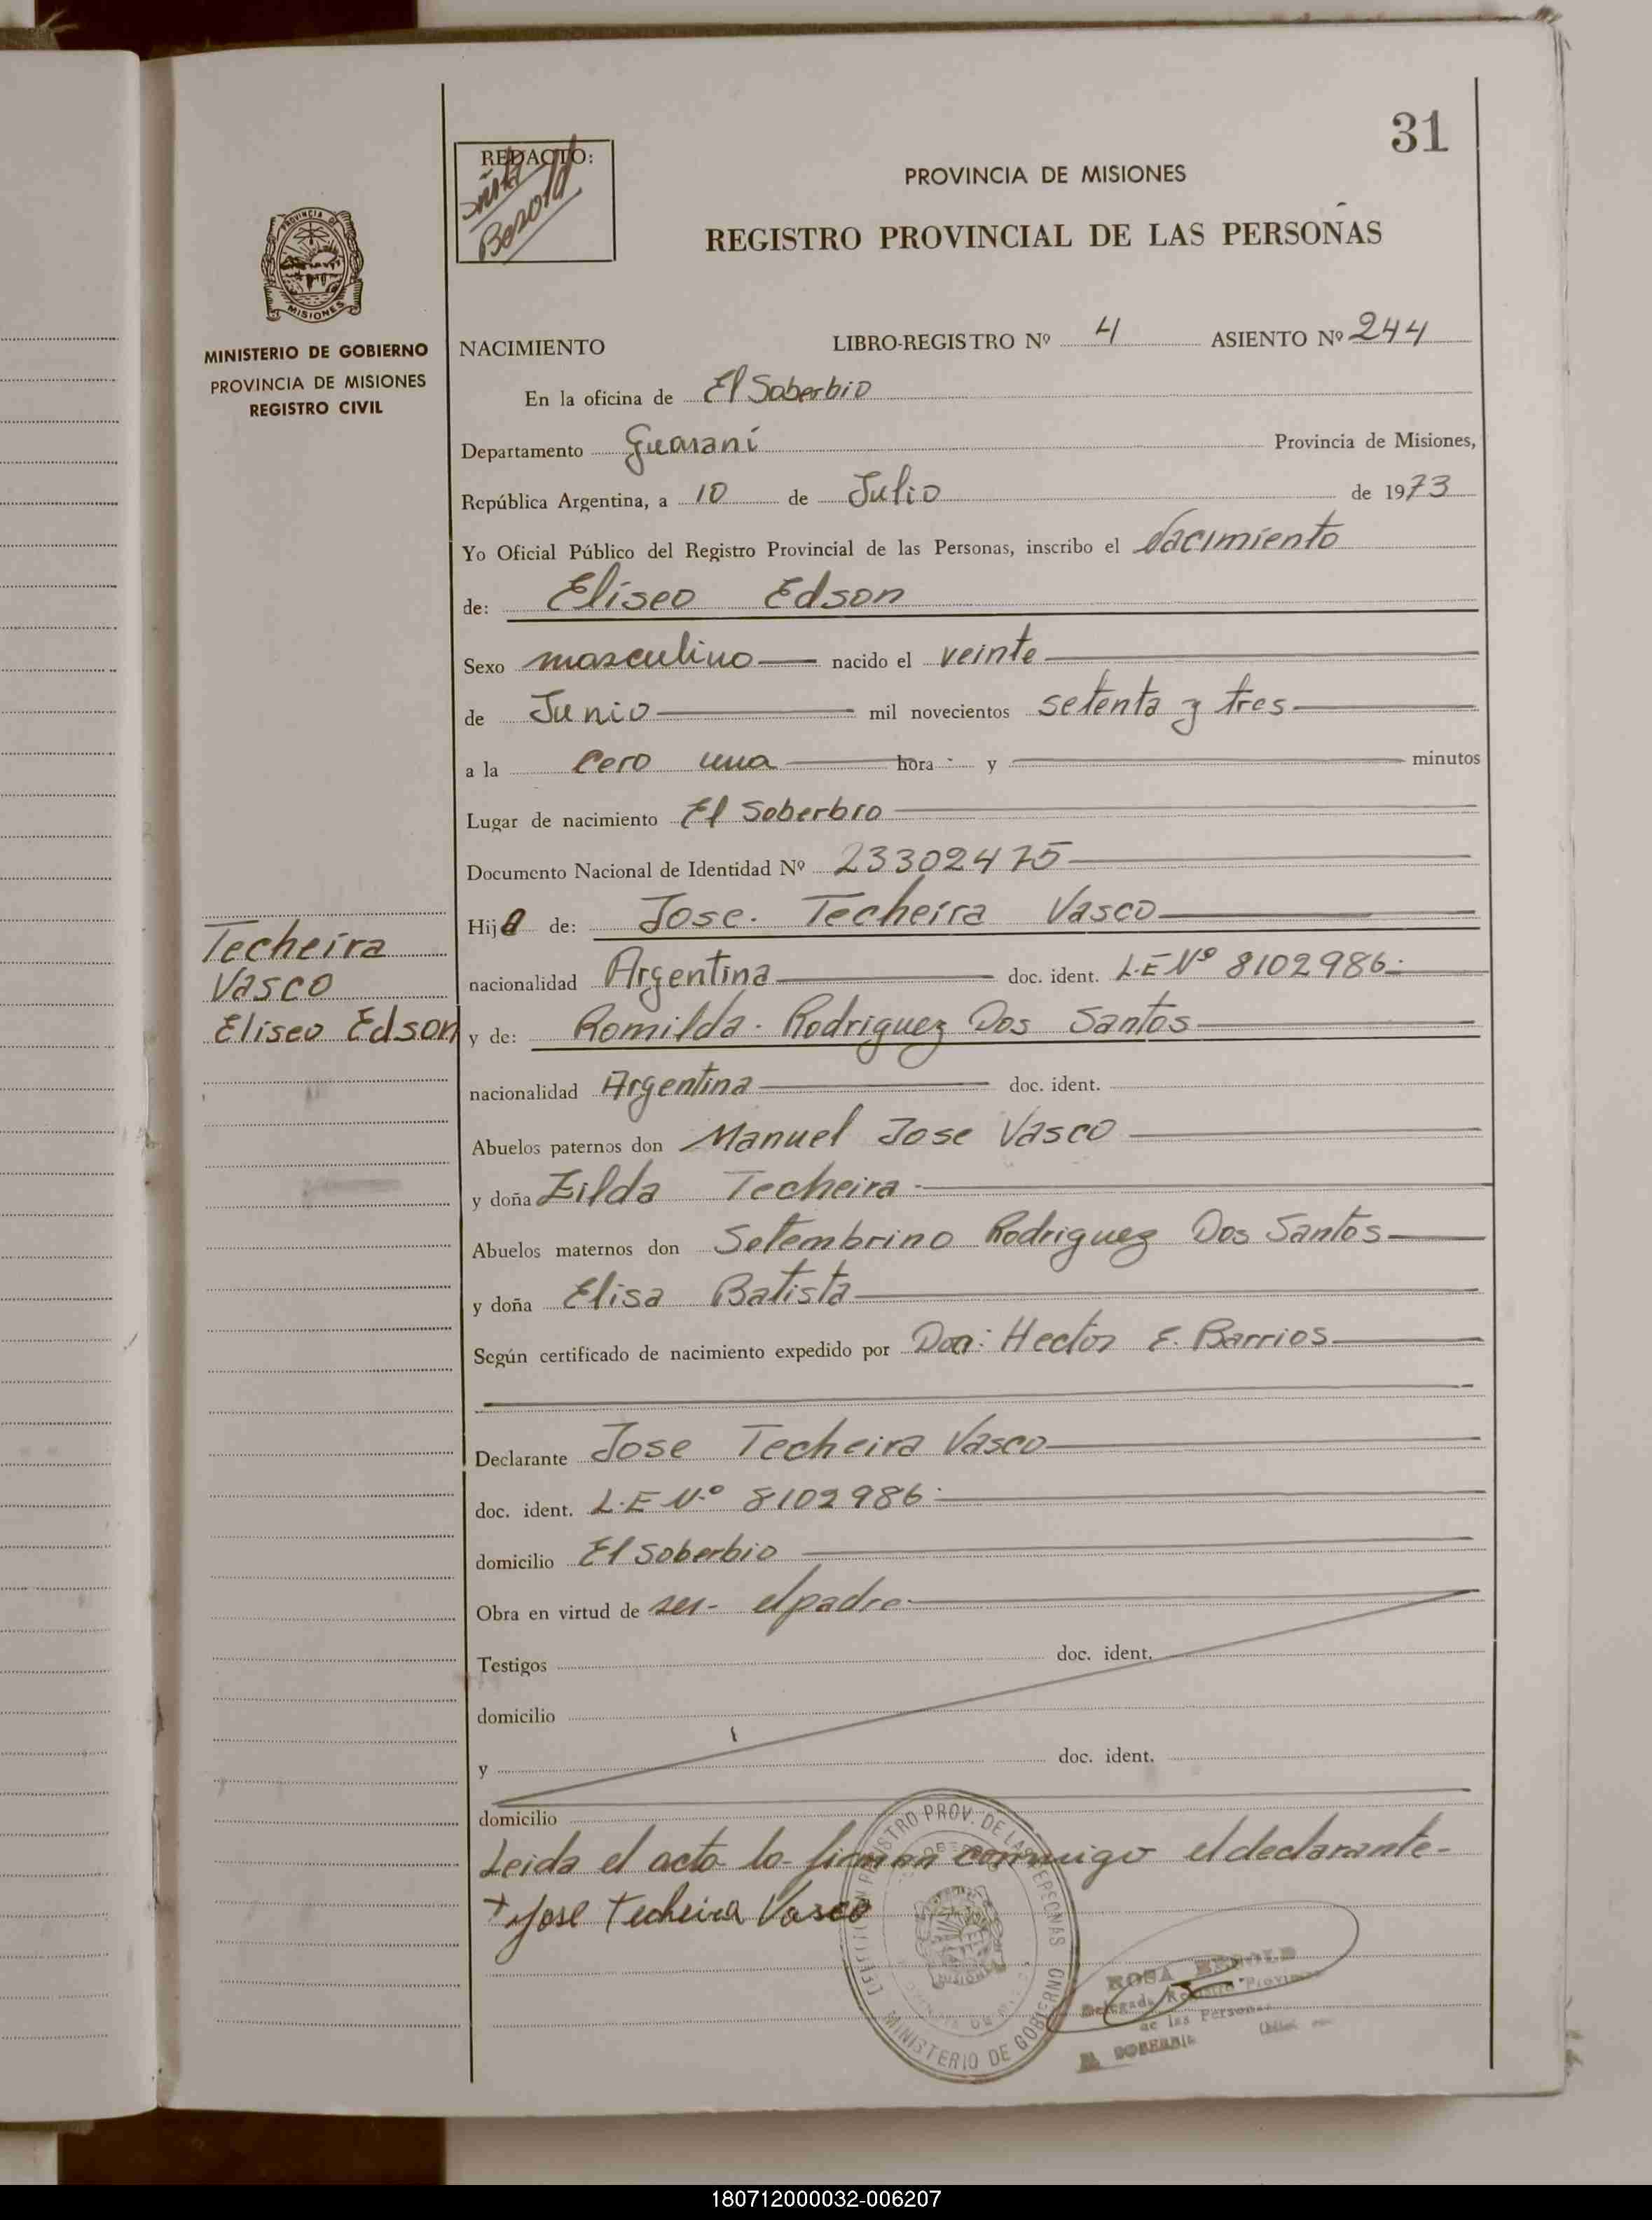 31
REDACTO:
Besold
PROVINCIA DE MISIONES
REGISTRO PROVINCIAL DE LAS PERSONAS
PROVINCIA DE
MISIONES
MINISTERIO DE GOBIERNO
PROVINCIA DE MISIONES
REGISTRO CIVIL
NACIMIENTO LIBRO-REGISTRO Nº 4 ASIENTO Nº 244
En la oficina de El Soberbio
Departamento Guarani Provincia de Misiones,
República Argentina, a 10 de Julio de 1973
Yo Oficial Público del Registro Provincial de las Personas, inscribo el Nacimiento
de: Eliseo Edson
Sexo masculino nacido el veinte
de Junio mil novecientos setenta y tres
a la cero una hora y minutos
Lugar de nacimiento El Soberbio
Documento Nacional de Identidad Nº 23302475
Hijo de: Jose. Techeira Vasco
nacionalidad Argentina doc. ident. L.E Nº 8102986.
y de: Romilda. Rodriguez Dos Santos
nacionalidad Argentina doc. ident.
Techeira
Vasco
Eliseo Edson
Abuelos paternos don Manuel Jose Vasco
y doña Zilda Techeira
Abuelos maternos don Setembrino Rodriguez Dos Santos
y doña Elisa Batista
Según certificado de nacimiento expedido por Hector E. Barrios
Declarante Jose Techeira Vasco
doc. ident. L.E N.º 8102986.
domicilio El Soberbio
Obra en virtud de ser- el padre
Testigos doc. ident.
domicilio
y doc. ident.
domicilio
Leida el acta lo firman conmigo el declarante-
+ Jose Techeira Vasco
REGISTRO PROV. DE LAS PERSONAS
MINISTERIO DE GOBIERNO
MISIONES
ROSA BESOLD
Delegada Registro Provincial
de las Personas
EL SOBERBIO
180712000032-006207